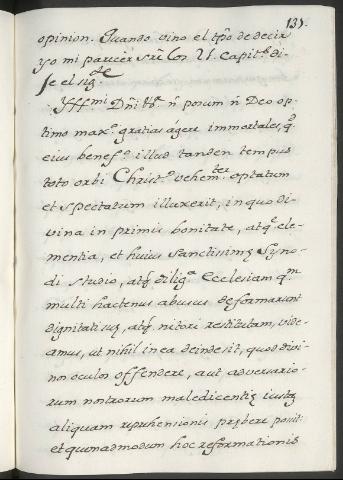 135.
opinion. Quando vino el tpõ de decir
yo mi parecer srẽ los 21. Capit.ˢ di-
je el sig.ᵗᵉ
Yll.ᵐⁱ Dñi non possum ñ Deo op-
timo max.º gratias ágere immortales, q.ᵈ
eius benef.º illud tanden tempus
toto orbi Christ.º vehem.ᵗᵉʳ optatum
et spectatum illuxerit, in quo di-
vina in primis bonitate, atq.ᵉ cle-
mentia, et huius sanctissimę Syno-
di studio, atq̃ dilig.ª Ecclesiam q.ᵐ
multi hactenus abusus deformarunt
dignitati suę, atq̃ nitori restitutam, vide-
amus, ut nihil in ea deinde sit, quod divi-
nos oculos offendere, aut adversario-
rum nostrorum maledicentię iustę
aliquam reprhensionis prębere possit:
et quemadmodum hoc reformationis